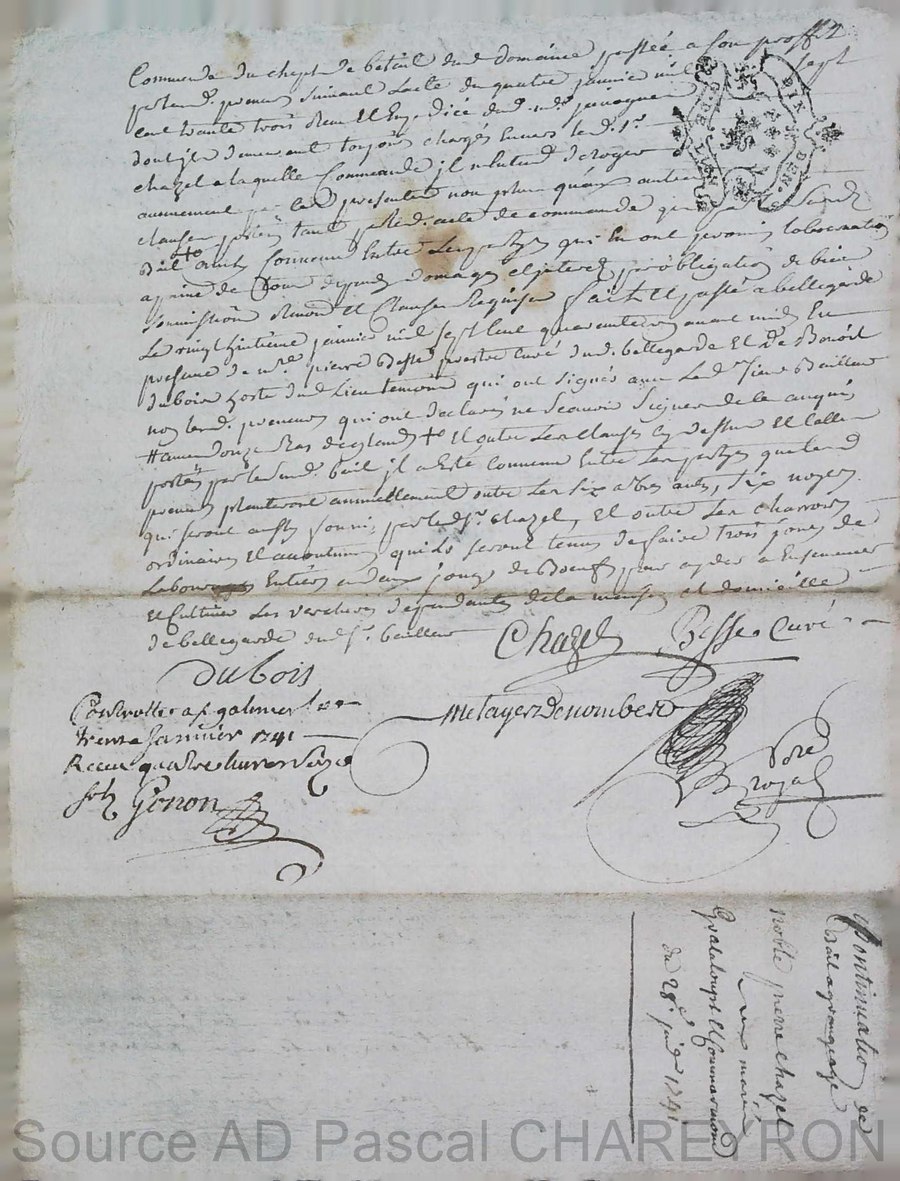 Commande du cheptel de bétail dud. domaine passée a son proffit
par led. preneur suivant lacte du quatre janvier mil sept
cent trante trois receu et
dont ils demeurent toujours chargés envers led. sr.
chazel a laquelle Commande il n'entend deroger
aucunement par les presentes non plus quaux autres
clauses portées tant par led. acte de commande que
bail ainsy convenu Entre les partyes qui en ont promis lobservation
a paine de tous depens domages et par obligation de biens
soumissions renon. et Clauses Requises fait et passé a bellegarde
Le vingt huitieme janvier mil sept cent quarante un avant midy En
presence de mre. pierre Besse prestre curé dud. bellegarde Et de Benoit
dubois hoste dud. Lieu temoins qui ont signés avec Led. Sieur Bailleur
non lesd. preneurs qui ont declarés ne scavoir signer de ce enquis
Et outre Les clauses cy dessus et celles
portées par led. bail il a Esté convenu Entre Les partyes que lesd.
preneurs planteront annuellement outre Les six arbres antés, six noyers
qui seront aussy fournis par led. sr. chazel, Et outre Les charrois
ordinaires et accoutumés quils seront tenus de faire trois jours de
Labourages Entiers a deux jougs de Boeufs pour ayder a Ensemencer
et Cultiver Les vercheres dependantes de la maison et domicille
de bellegarde dud. sr. bailleur
Chazel Besse Curé
Dubois
Controllé a st. galmier le
trente Janvier 1741
Receu quatre livres seize
sols Gonon
metayer Denombere
Nore Royal
DIX DEN.
Continuation de
Bail a grangeage
noble pierre chazel
aux mariés
Grataloup et
du 28e janv. 1741
Source AD Pascal CHAREYRON